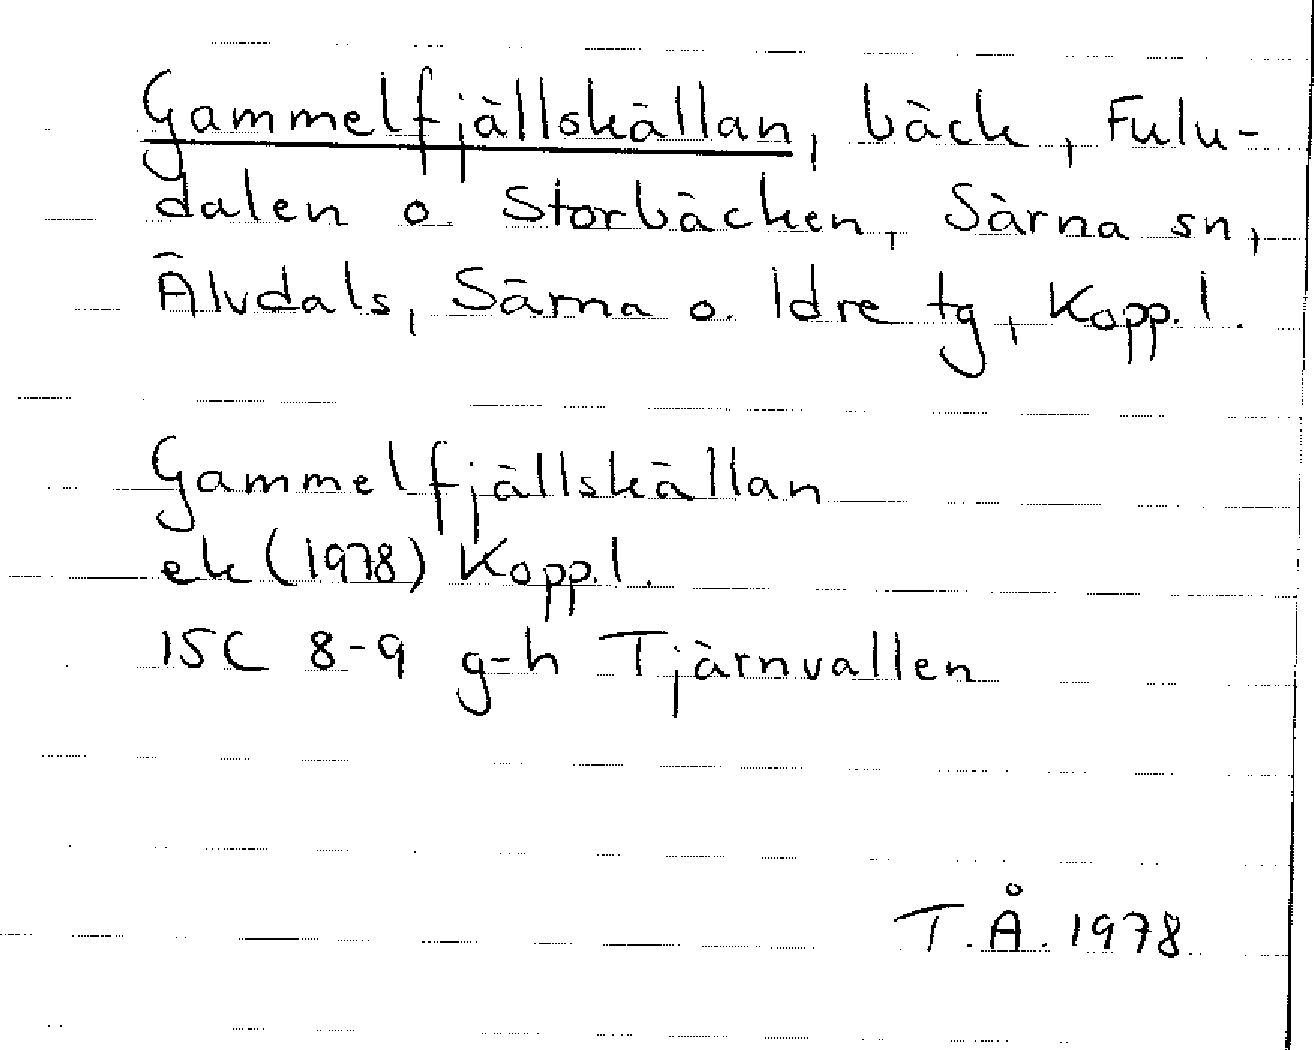 Gammelfjällskällan, bäck, Fulu-
dalen o. Storbäcken, Särna sn,
Älvdals, Särna o. Idre tg, Kopp. l.
Gammelfjällskällan
ek (1978) Kopp. l.
15C 8-9 g-h Tjärnvallen
T.Å. 1978